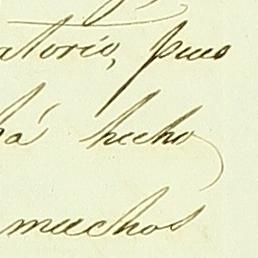 atorio, pues
há hecho
muchos